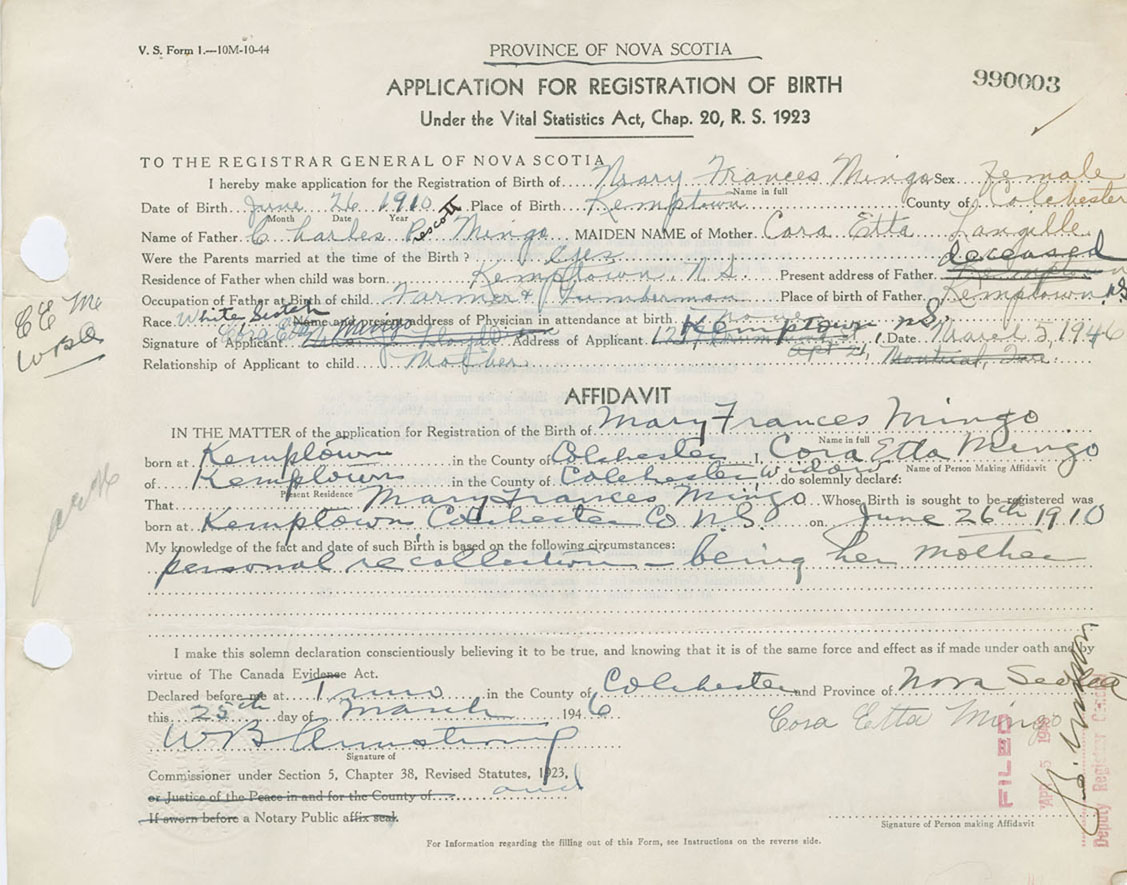 V. S. Form 1.—10M-10-44
PROVINCE OF NOVA SCOTIA
APPLICATION FOR REGISTRATION OF BIRTH
990003
Under the Vital Statistics Act, Chap. 20, R. S. 1923
TO THE REGISTRAR GENERAL OF NOVA SCOTIA
I hereby make application for the Registration of Birth of Mary Frances Mingo Sex Female
Name in full
Date of Birth June 26 1910 Place of Birth Kemptown County of Colchester
Month Date Year
Name of Father Charles Prescott Mingo MAIDEN NAME of Mother Cora Etta Langille
Were the Parents married at the time of the Birth? yes deceased
Residence of Father when child was born. Kemptown. N S Present address of Father. Kemptown
Occupation of Father at Birth of child. Farmer & Lumberman Place of birth of Father. Kemptown, NS
Race. White Scotch Name and present address of Physician in attendance at birth
Signature of Applicant Mingo Address of Applicant Kemptown NS. Date March 5, 1946
apt 21, Montreal, Que
Relationship of Applicant to child Mother
CE M
WBA
AFFIDAVIT
IN THE MATTER of the application for Registration of the Birth of Mary Frances Mingo
Name in full
born at Kemptown in the County of Colchester I, Cora Etta Mingo
Name of Person Making Affidavit
of Kemptown in the County of Colchester widow do solemnly declare:
Present Residence
That Mary Frances Mingo Whose Birth is sought to be registered was
born at Kemptown Colchester Co N.S. on June 26th 1910
My knowledge of the fact and date of such Birth is based on the following circumstances:
personal recollection – being her mother
I make this solemn declaration conscientiously believing it to be true, and knowing that it is of the same force and effect as if made under oath and by
virtue of The Canada Evidence Act.
Declared before me at Truro in the County of Colchester and Province of Nova Scotia
this 25th day of March 1946
Cora Etta Mingo
W B Armstrong
Signature of
Commissioner under Section 5, Chapter 38, Revised Statutes, 1923,
or Justice of the Peace in and for the County of and
If sworn before a Notary Public affix seal.
Signature of Person making Affidavit
FILED
APR 5 1946
Deputy Registrar General
For Information regarding the filling out of this Form, see Instructions on the reverse side.